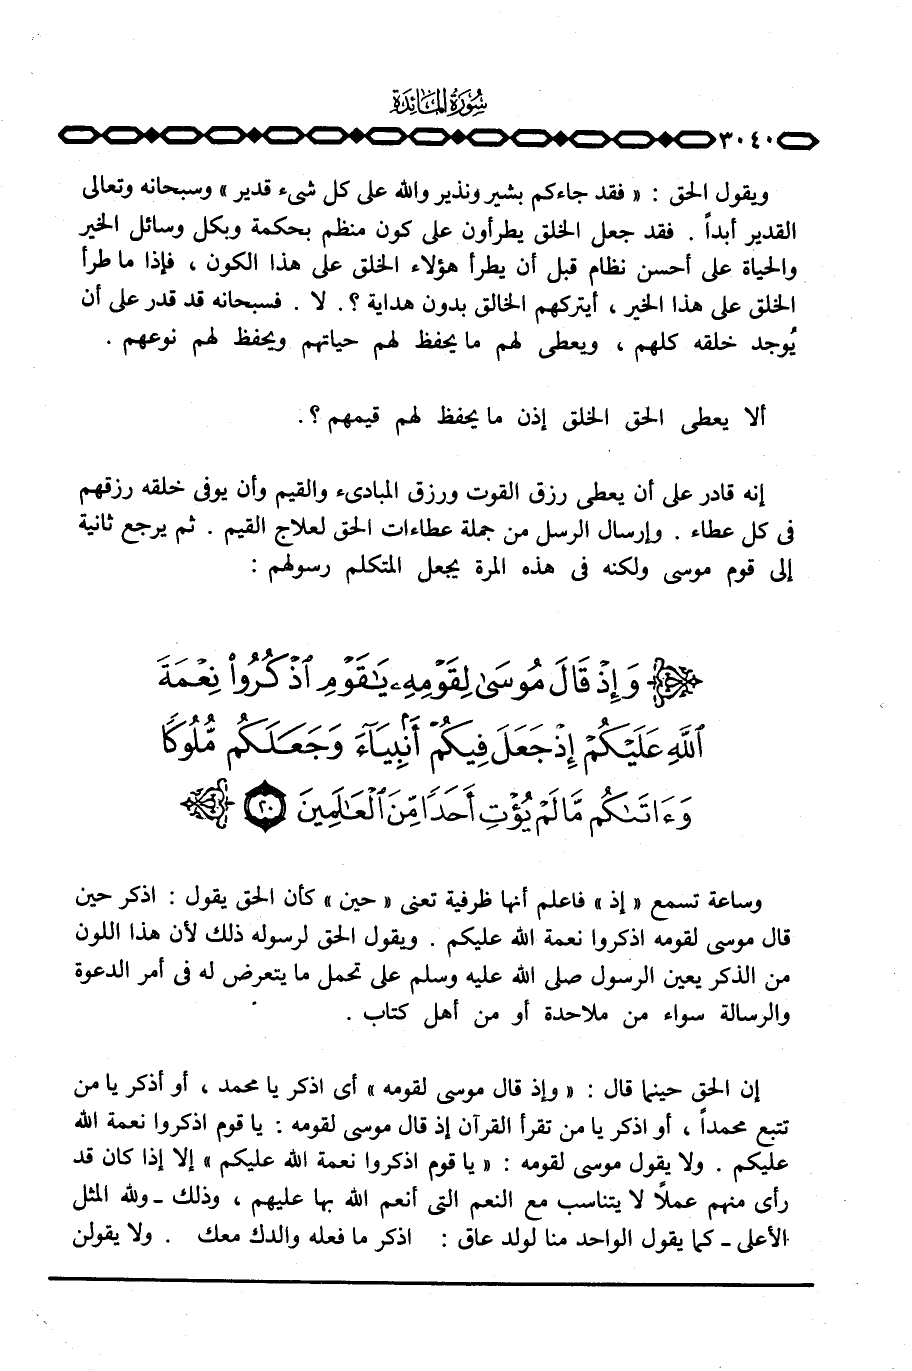 سُورَةُ المَائِدَة
٣٠٤٠
ويقول الحق : « فقد جاءكم بشير ونذير والله على كل شىء قدير » وسبحانه وتعالى
القدير أبداً . فقد جعل الخلق يطرأون على كون منظم بحكمة وبكل وسائل الخير
والحياة على أحسن نظام قبل أن يطرأ هؤلاء الخلق على هذا الكون ، فإذا ما طرأ
الخلق على هذا الخير ، أيتركهم الخالق بدون هداية ؟. لا . فسبحانه قد قدر على أن
يُوجد خلقه كلهم ، ويعطى لهم ما يحفظ لهم حياتهم ويحفظ لهم نوعهم .
ألا يعطى الحق الخلق إذن ما يحفظ لهم قيمهم ؟.
إنه قادر على أن يعطى رزق القوت ورزق المبادىء والقيم وأن يوفى خلقه رزقهم
فى كل عطاء . وإرسال الرسل من جملة عطاءات الحق لعلاج القيم . ثم يرجع ثانية
إلى قوم موسى ولكنه فى هذه المرة يجعل المتكلم رسولهم :
وَإِذْ قَالَ مُوسَىٰ لِقَوْمِهِۦ يَٰقَوْمِ ٱذْكُرُوا۟ نِعْمَةَ
ٱللَّهِ عَلَيْكُمْ إِذْ جَعَلَ فِيكُمْ أَنۢبِيَآءَ وَجَعَلَكُم مُّلُوكًا
وَءَاتَىٰكُم مَّا لَمْ يُؤْتِ أَحَدًا مِّنَ ٱلْعَٰلَمِينَ ٢٠
وساعة تسمع « إذ » فاعلم أنها ظرفية تعنى « حين » كأن الحق يقول : اذكر حين
قال موسى لقومه اذكروا نعمة الله عليكم . ويقول الحق لرسوله ذلك لأن هذا اللون
من الذكر يعين الرسول صلى الله عليه وسلم على تحمل ما يتعرض له فى أمر الدعوة
والرسالة سواء من ملاحدة أو من أهل كتاب .
إن الحق حينما قال : « وإذ قال موسى لقومه » أى اذكر يا محمد ، أو أذكر يا من
تتبع محمداً ، أو اذكر يا من تقرأ القرآن إذ قال موسى لقومه : يا قوم اذكروا نعمة الله
عليكم . ولا يقول موسى لقومه : « يا قوم اذكروا نعمة الله عليكم » إلا إذا كان قد
رأى منهم عملاً لا يتناسب مع النعم التى أنعم الله بها عليهم ، وذلك ـ ولله المثل
الأعلى ـ كما يقول الواحد منا لولد عاق : اذكر ما فعله والدك معك . ولا يقولن